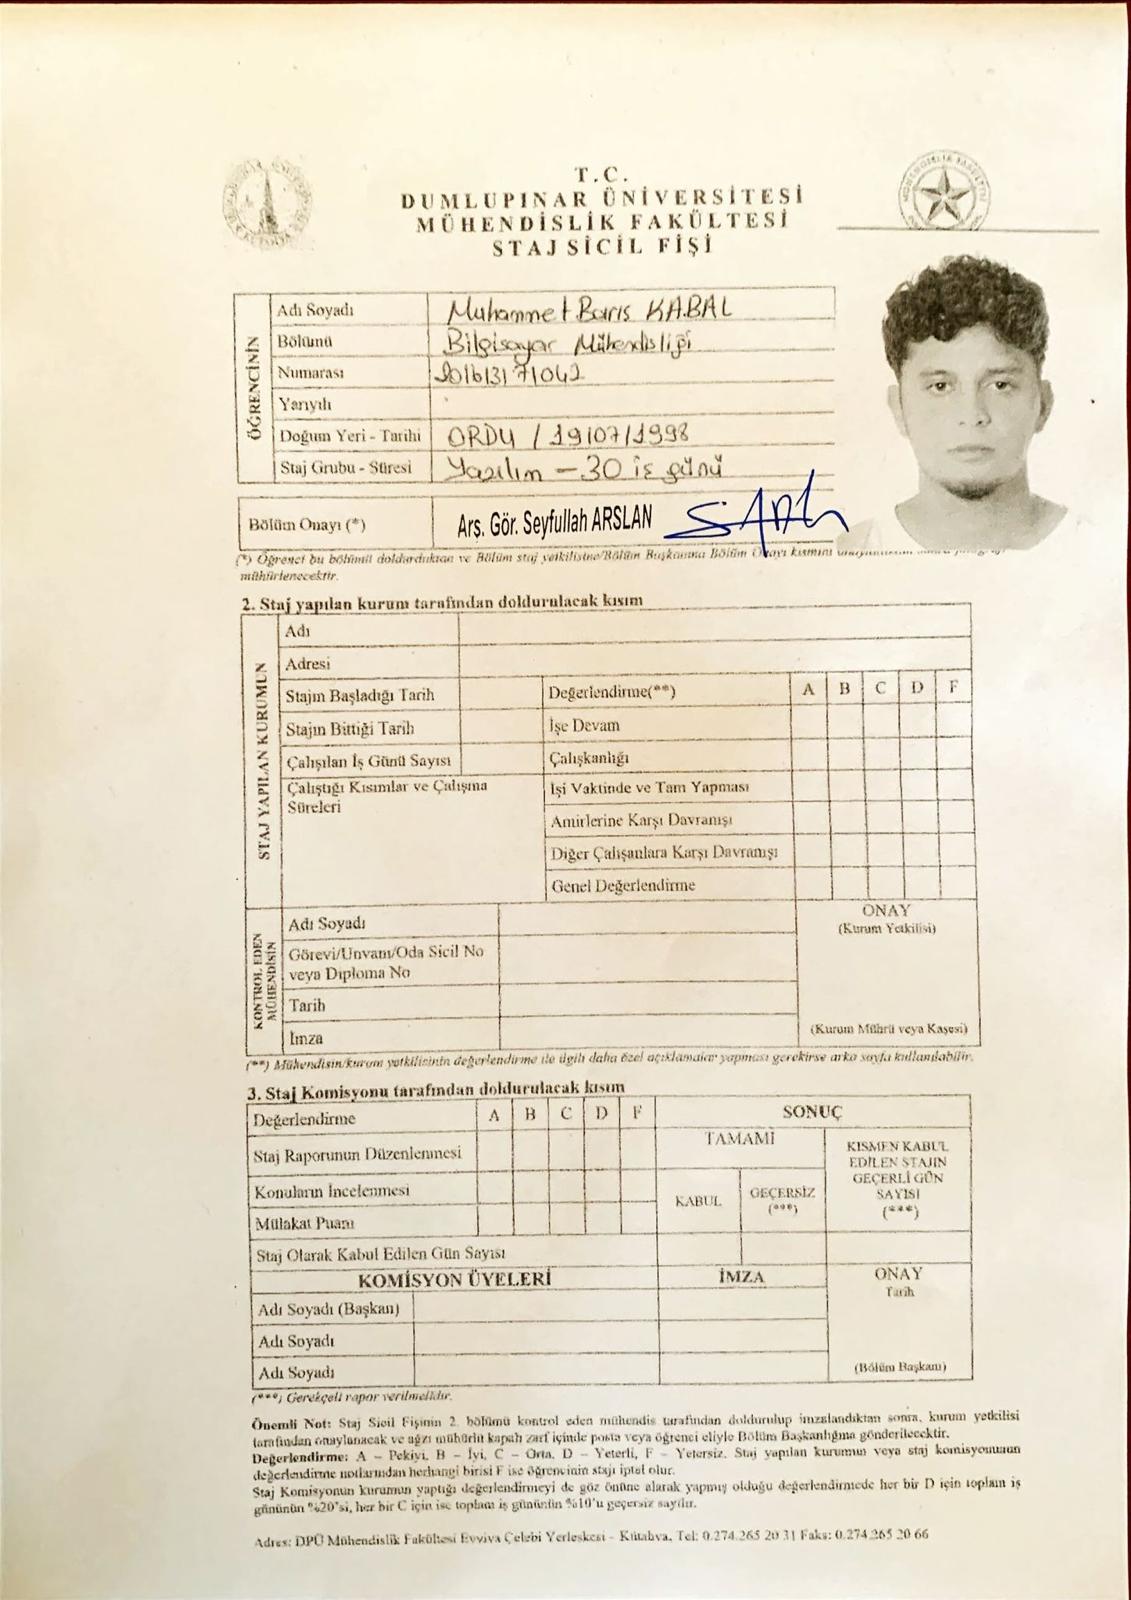 T.C.
DUMLUPINAR ÜNİVERSİTESİ
MÜHENDİSLİK FAKÜLTESİ
STAJ SİCİL FİŞİ
ÖĞRENCİNİN
Adı Soyadı Muhammet Barış KABAL
Bölümü Bilgisayar Mühendisliği
Numarası 201613171042
Yarıyılı
Doğum Yeri - Tarihi ORDU / 19/07/1998
Staj Grubu - Süresi Yazılım - 30 iş günü
Bölüm Onayı (*) Arş. Gör. Seyfullah ARSLAN
(*) Öğrenci bu bölümü doldurduktan ve Bölüm staj yetkilisine/Bölüm Başkanına Bölüm Onayı kısmını
mühürlenecektir.
2. Staj yapılan kurum tarafından doldurulacak kısım
STAJ YAPILAN KURUMUN
Adı
Adresi
Stajın Başladığı Tarih Değerlendirme(**) A B C D F
Stajın Bittiği Tarih İşe Devam
Çalışılan İş Günü Sayısı Çalışkanlığı
Çalıştığı Kısımlar ve Çalışma İşi Vaktinde ve Tam Yapması
Süreleri
Amirlerine Karşı Davranışı
Diğer Çalışanlara Karşı Davranışı
Genel Değerlendirme
KONTROL EDEN
MÜHENDİSİN
Adı Soyadı ONAY
(Kurum Yetkilisi)
Görevi/Unvanı/Oda Sicil No
veya Diploma No
Tarih
İmza (Kurum Mührü veya Kaşesi)
(**) Mühendisin/kurum yetkilisinin değerlendirme ile ilgili daha özel açıklamalar yapması gerekirse arka sayfa kullanılabilir.
3. Staj Komisyonu tarafından doldurulacak kısım
Değerlendirme A B C D F SONUÇ
Staj Raporunun Düzenlenmesi TAMAMI KISMEN KABUL
EDİLEN STAJIN
GEÇERLİ GÜN
SAYISI
(***)
Konuların İncelenmesi KABUL GEÇERSİZ
(***)
Mülakat Puanı
Staj Olarak Kabul Edilen Gün Sayısı
KOMİSYON ÜYELERİ İMZA ONAY
Tarih
Adı Soyadı (Başkan)
Adı Soyadı
Adı Soyadı (Bölüm Başkanı)
(***) Gerekçeli rapor verilmelidir.
Önemli Not: Staj Sicil Fişinin 2. bölümü kontrol eden mühendis tarafından doldurulup imzalandıktan sonra, kurum yetkilisi
tarafından onaylanacak ve ağzı mühürlü kapalı zarf içinde posta veya öğrenci eliyle Bölüm Başkanlığına gönderilecektir.
Değerlendirme: A – Pekiyi, B – İyi, C – Orta, D – Yeterli, F – Yetersiz. Staj yapılan kurumun veya staj komisyonunun
değerlendirme notlarından herhangi birisi F ise öğrencinin stajı iptal olur.
Staj Komisyonun kurumun yaptığı değerlendirmeyi de göz önüne alarak yapmış olduğu değerlendirmede her bir D için toplam iş
gününün %20'si, her bir C için ise toplam iş gününün %10'u geçersiz sayılır.
Adres: DPÜ Mühendislik Fakültesi Evviya Çelebi Yerleşkesi - Kütahya, Tel: 0.274.265 20 31 Faks: 0.274.265 20 66